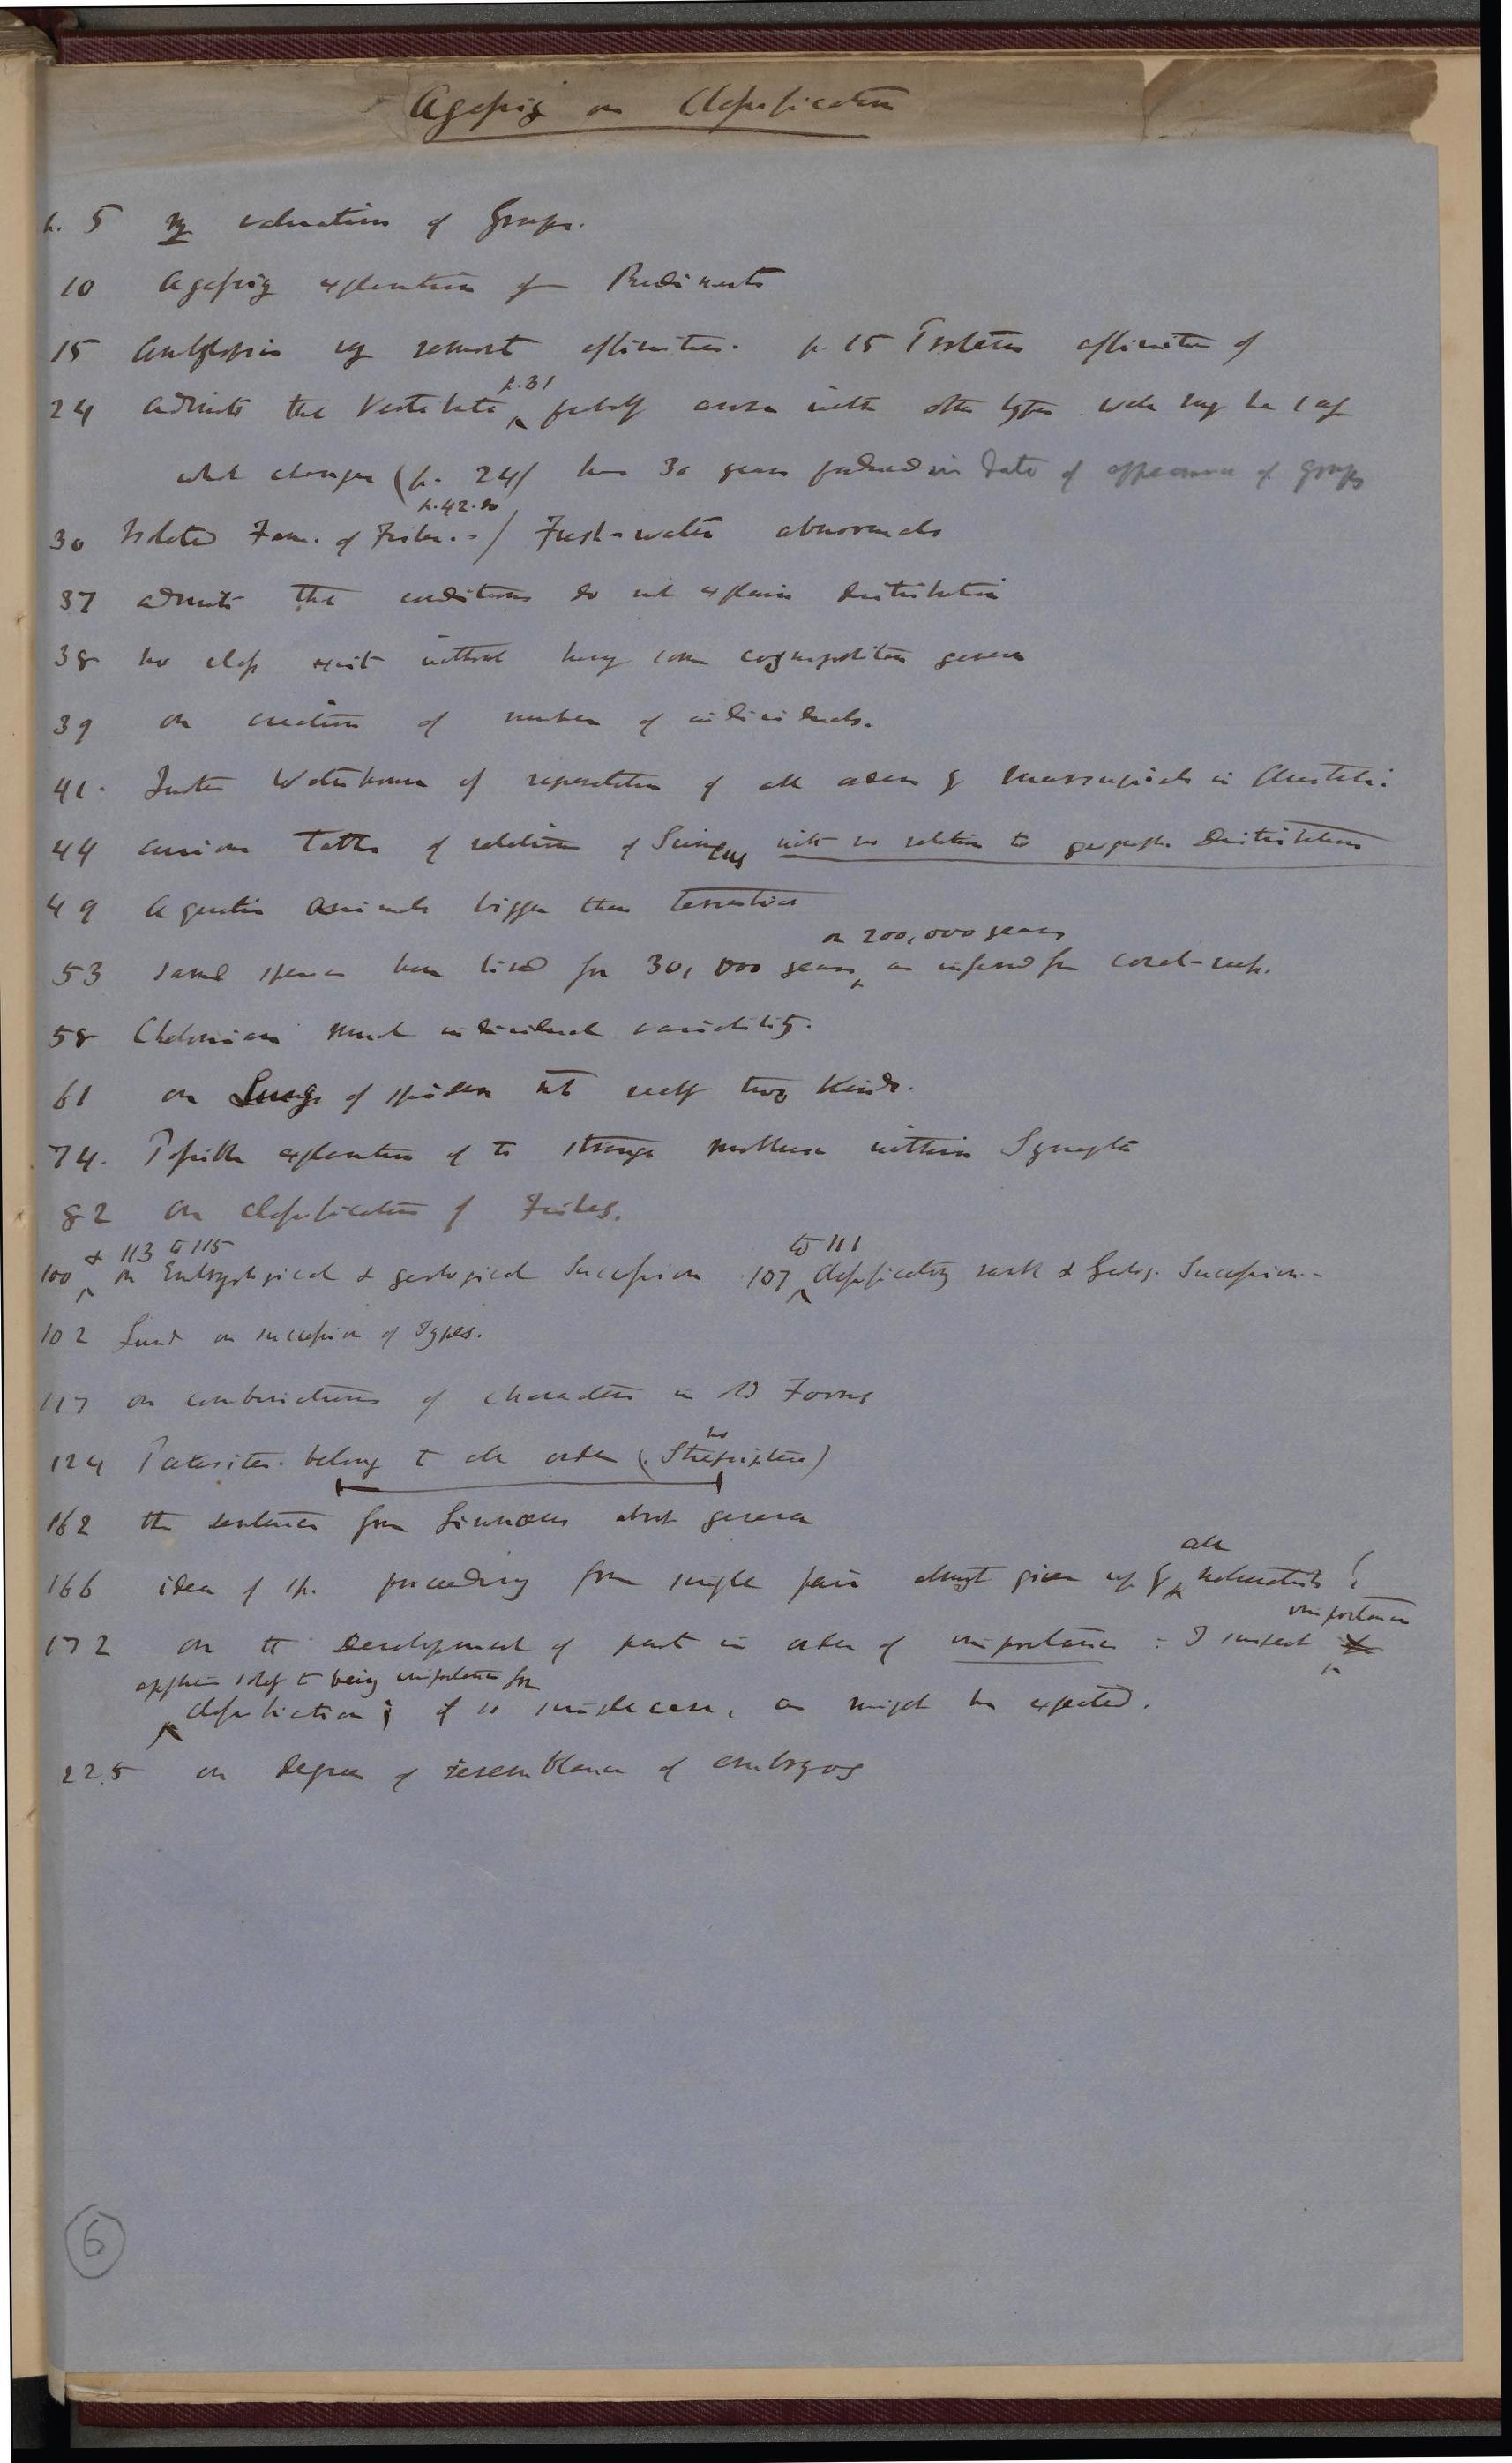 Agassiz on Classification
p. 5 my valuation of Groups.
10 Agassiz explanation of Rudiments
15 Amblyopsis my remark affinities. p. 15 Isolation affinities of
24 admits the Vertebrata ^p. 31 probably arose with other types. well may he say
what changes (p. 24) has 30 years produced in date of appearance of groups
30 Isolated Fam. of Fishes. - / p. 42. 50 Fresh-water abnormals
37 admits that conditions do not explain distribution
38 no class exist without having some cosmopolitan genera
39 on creation of number of individuals.
41. Quotes Waterhouse of representation of all orders of Marsupials in Australia.
44 curious Table of relation of Scincus with no relation to geograph. Distribution
49 Aquatic Animals bigger than terrestrial
53 same species have lived for 30,000 years ^or 200,000 years as inferred from coral-reefs.
58 Chelonians much individual variability.
61 on Lungs of spiders not really two kinds.
74. Possible explanation of the strange molluscs within Synapta
82 On classification of Fishes.
100 ^& 113 to 115 on Embryological & geological Succession 107 ^to 111 classificatory rank & Geolog. Succession. -
102 Lund on succession of Types.
117 on combinations of characters in old Forms
124 Parasites belong to all orders (no Strepsiptera)
162 the sentence from Linnæus about genera
166 idea of sp. proceeding from single pair almost given up by ^all naturalists!
172 on the development of part in order of importance: I suspect ^importance
^applies solely to being importance for classification; if so simple case, as might be expected.
225 on degree of resemblance of embryos
6